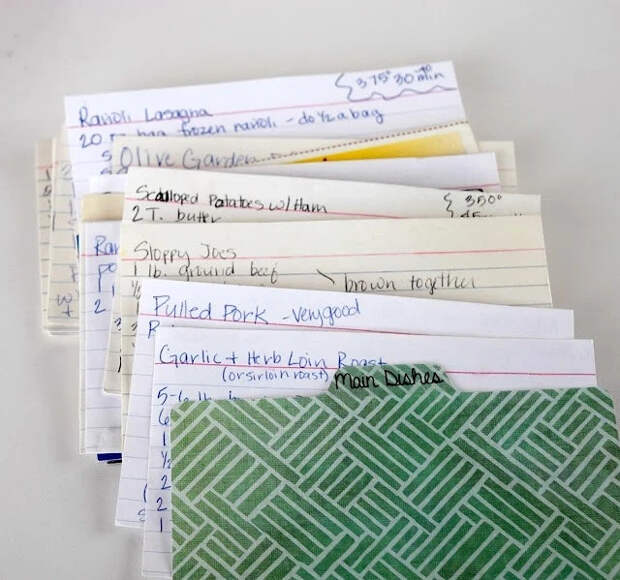 375° 30-40 min
Ravioli Lasagna
20 oz bag frozen ravioli - do 1/2 a bag
5
Olive Garden
Scalloped Potatoes w/ Ham
350°
2 T. butter
45
Sloppy Joes
1 lb. ground beef
brown together
Pulled Pork - very good
Garlic + Herb Loin Roast
(or sirloin roast)
Main Dishes
5-6 lb.
6
1
1/2
2
2
1